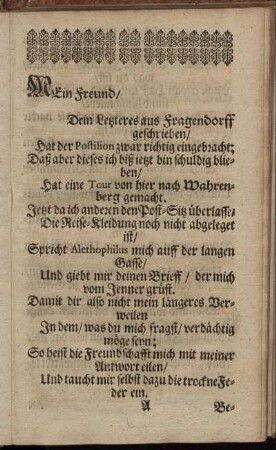 MEin Freund/
Dein Letzteres aus Fragendorff
geschrieben/
Hat der Postilion zwar richtig eingebracht;
Daß aber dieses ich biß ietzt bin schuldig blie-
ben/
Hat eine Tour von hier nach Wahren-
berg gemacht.
Jetzt da ich anderen den Post-Sitz überlasse/
Die Reise-Kleidung noch nicht abgeleget
ist/
Spricht Alethophilus mich auff der langen
Gasse/
Und giebt mir deinen Brieff/ der mich
vom Jenner grüst.
Damit dir also nicht mein längeres Ver-
weilen
In dem/ was du mich fragst/ verdächtig
möge seyn;
So heist die Freundschafft mich mit meiner
Antwort eilen/
Und taucht mir selbst dazu die trockne Fe-
der ein.
A Be-